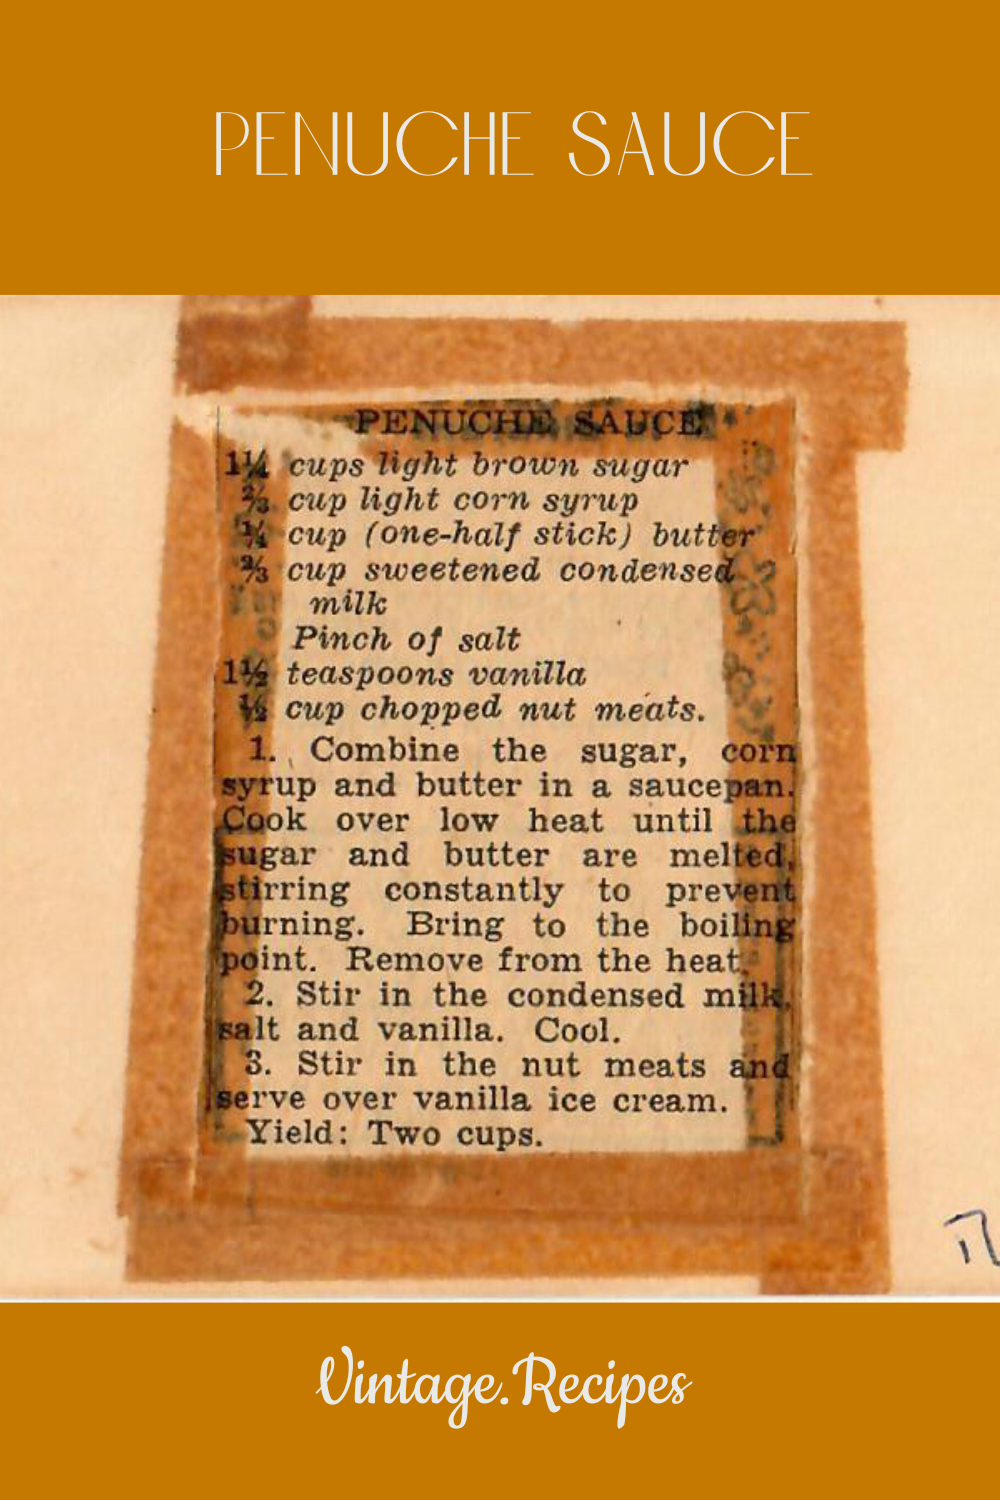 PENUCHE SAUCE
PENUCHE SAUCE
1¼ cups light brown sugar
⅔ cup light corn syrup
¼ cup (one-half stick) butter
⅔ cup sweetened condensed
milk
Pinch of salt
1½ teaspoons vanilla
½ cup chopped nut meats.
1. Combine the sugar, corn
syrup and butter in a saucepan.
Cook over low heat until the
sugar and butter are melted,
stirring constantly to prevent
burning. Bring to the boiling
point. Remove from the heat.
2. Stir in the condensed milk,
salt and vanilla. Cool.
3. Stir in the nut meats and
serve over vanilla ice cream.
Yield: Two cups.
Vintage.Recipes